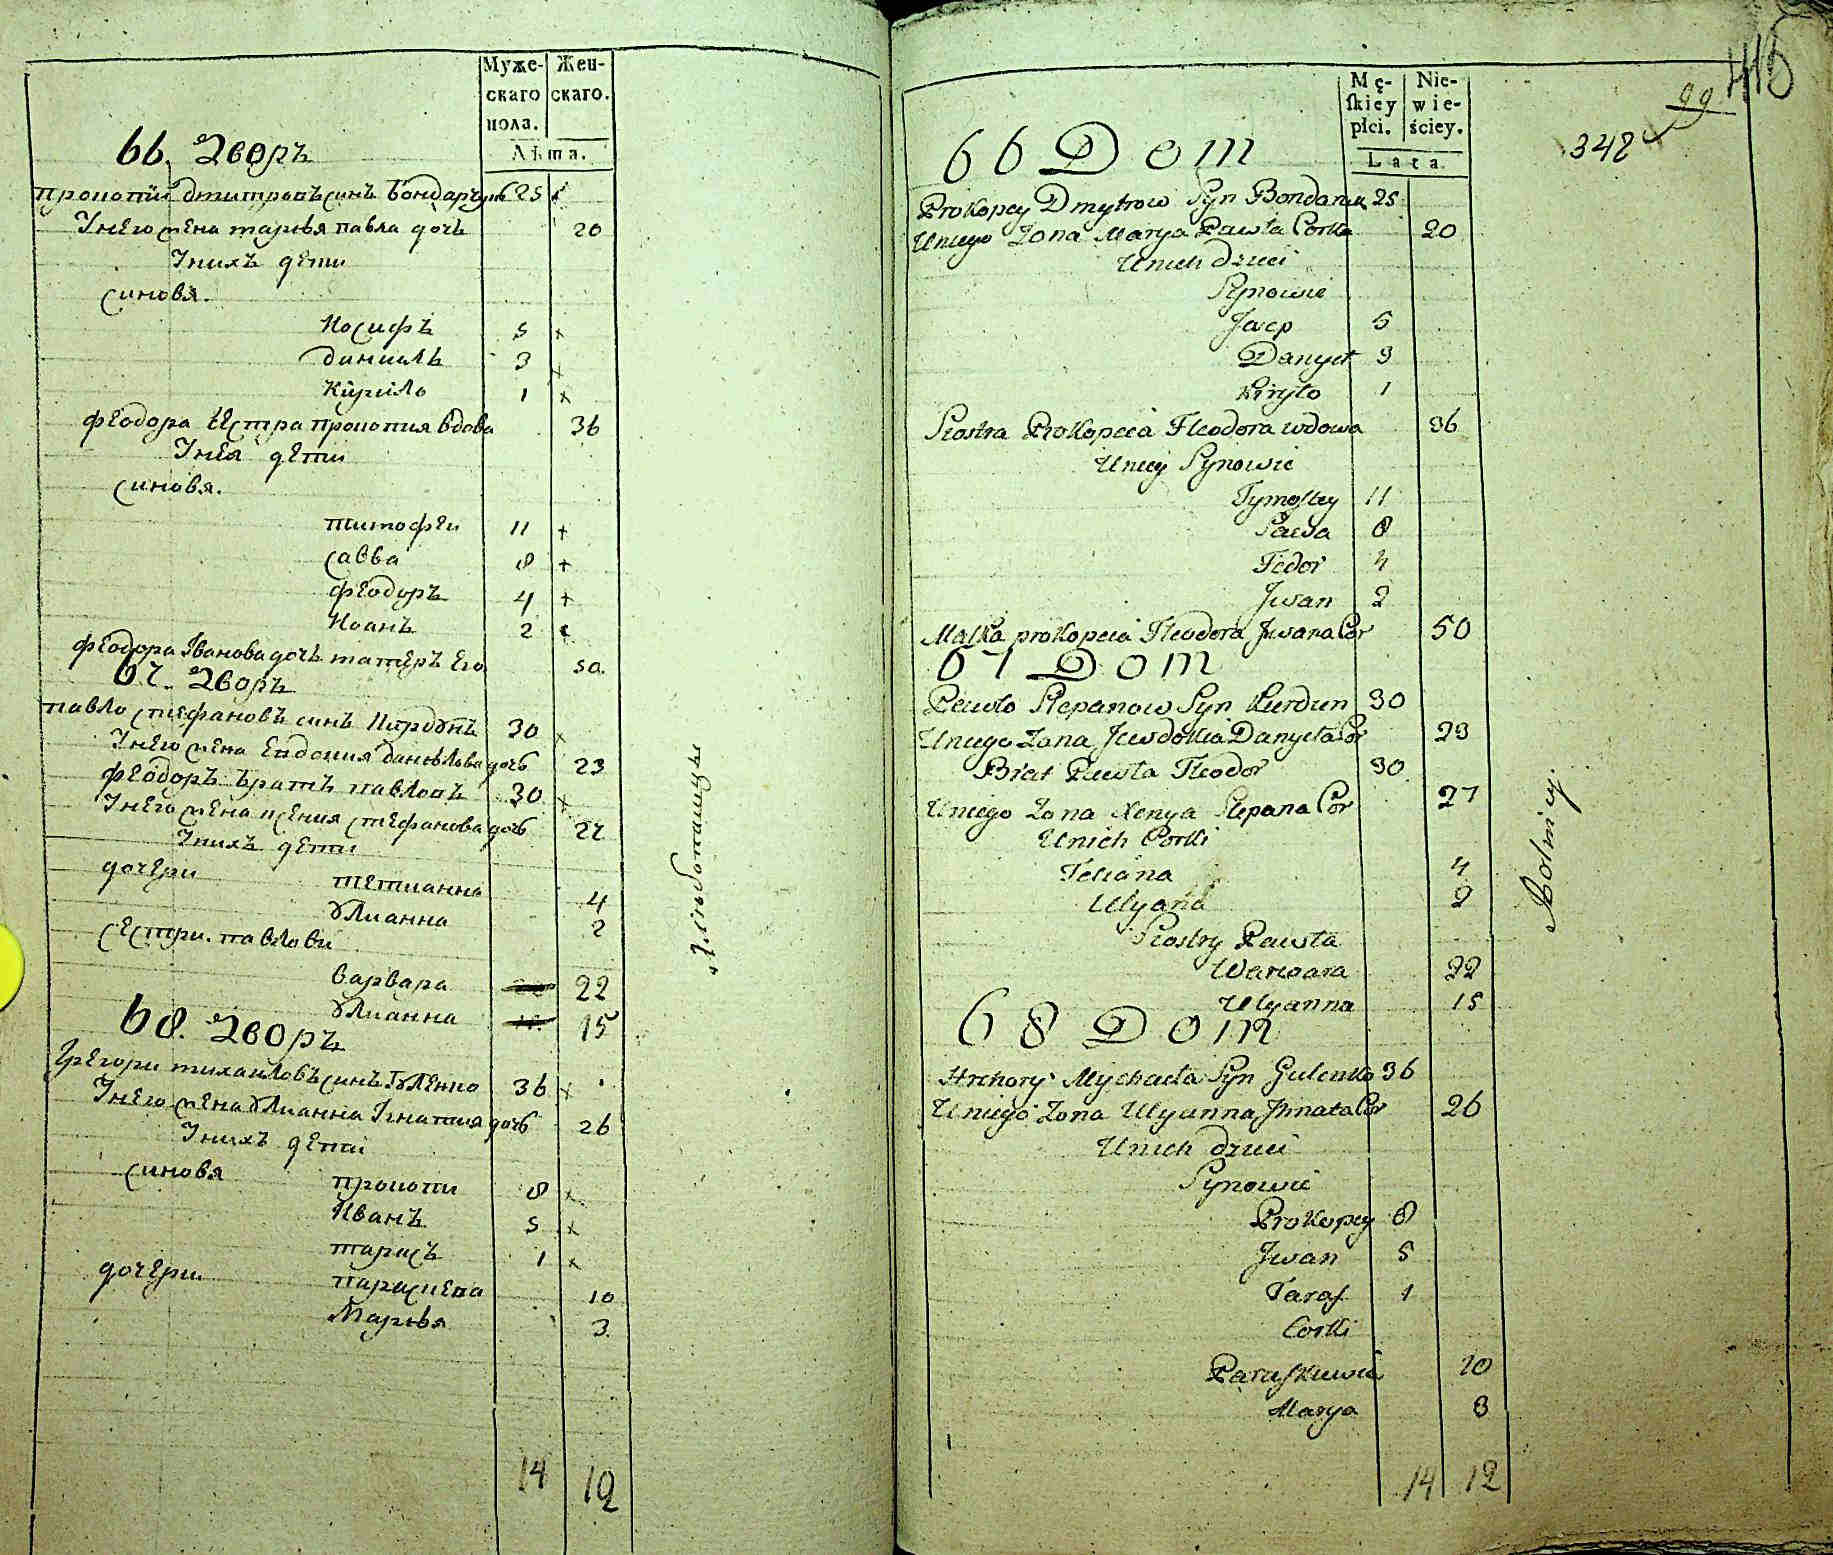 Муже-
скаго
пола.
Жен-
скаго.
Лѣта.
66. Дворъ
Прокопий Дмитровъ синъ Бондарчукъ 25
У него жена Маръя Павла дочъ 20
У нихъ дети
синовя.
Иосифъ 5
Даниилъ 3
Кирило 1
Феодора сестра Прокопия вдова 36
У нея дети
синовя.
Тимофеи 11
Савва 8
Феодоръ 4
Иоанъ 2
Феодора Иванова дочъ матеръ его 50.
67. Дворъ
Павло Стефановъ синъ 30
У него жена Евдокия Данилова дочъ 23
Феодоръ братъ Павловъ 30
У него жена Ксения Стефанова дочъ 27
У нихъ дети
дочери
Тетианна 4
Улианна 2
сестри Павлови
Варвара 22
Улианна 15
68. Дворъ
Григори Михаиловъ синъ Гуленко 36
У него жена Улианна Игнатия дочъ 26
У нихъ дети
синовя
Прокопи 8
Иванъ 5
Тарасъ 1
дочери
Параскева 10
Маръя 3.
14 12
Хлебопашцы
Mę-
skiey
płci.
Nie-
wie-
ściey.
Lata
415
99
342
66 Dom
Prokopey Dmytrow Syn Bondaruk 25
Uniego Zona Marya Pawła Corka 20
Unich dzieci
Synowie
Jozep 5
Danyeł 3
Kiryło 1
Siostra Prokopeia Fleodora wdowa 36
Uniey Synowie
Tymoftey 11
Sawa 8
Fedor 4
Jwan 2
Matka prokopeia Fleodora Jwana Cor 50
67 Dom
Pawło Stepanow Syn Kurdun 30
Uniego Zona Jewdokia Danyeła Cor 23
Brat Pawła Fleodor 30
Uniego Zona Xenya Stepana Cor 27
Unich Corki
Tetiana 4
Ulyana 2
Siostry Pawła
Warwara 22
Ulyanna 15
68 Dom
Hrehory Mychaeła Syn Gulenko 36
Uniego Zona Ulyanna Jhnata Cor 26
Unich dzieci
Synowie
Prokopey 8
Jwan 5
Taras 1
Corki
Paraskiewia 10
Marya 3
14 12
Rolnicy.